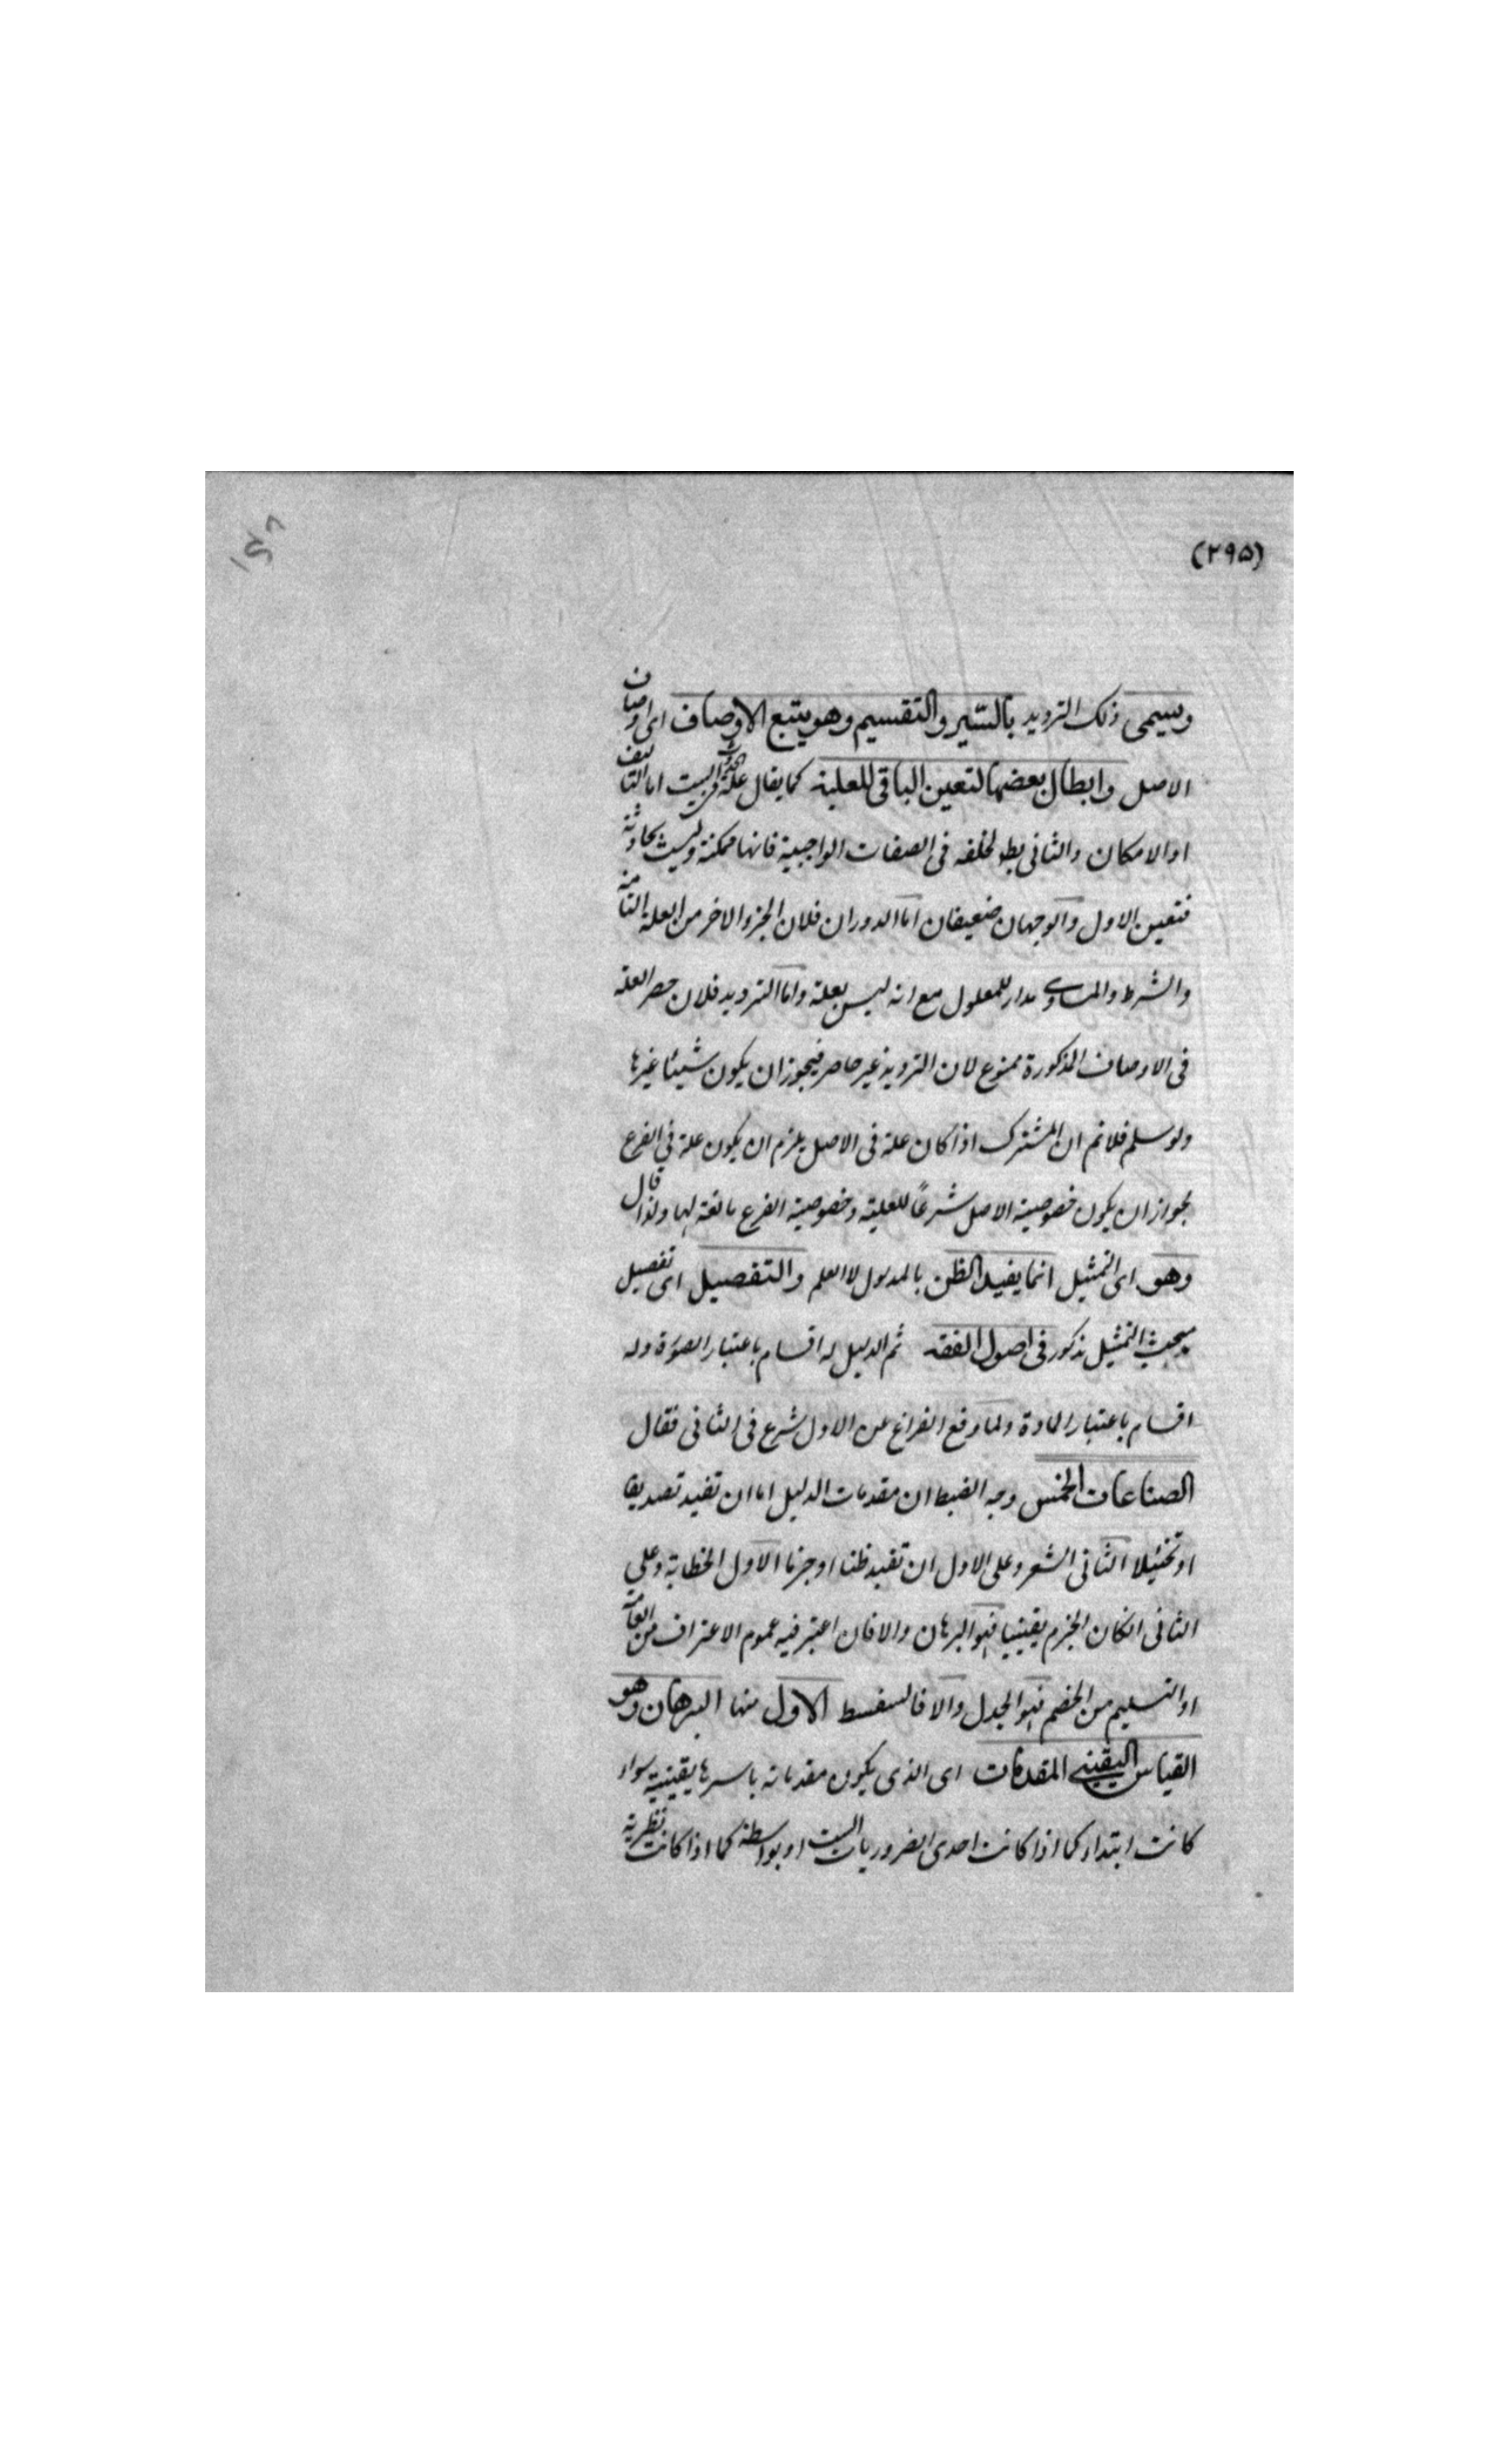 (٢٩٥)
ويسمى ذلك الترديد بالسير والتقسيم وهو يتبع الاوصاف اى اوصاف
الاصل وابطال بعضها لتعين الباقى للعلية كما يقال علة الحدوث فى البيت اما التاليف
او الامكان والثانى بط لتخلفه فى الصفات الواجبية فانها ممكنة وليست بحادثة
فتعين الاول والوجهان ضعيفان اما الدوران فلان الجزء الاخر من العلة التامة
والشرط والمساوى مدار للمعلول مع انه ليس بعلة واما الترديد فلان حصر العلة
فى الاوصاف المذكورة ممنوع لان الترديد غير حاصر فيجوز ان يكون شيئا غيرها
ولو سلم فلا نم ان المشترك اذا كان علة فى الاصل يلزم ان يكون علة فى الفرع
لجواز ان يكون خصوصية الاصل شرعًا للعلية وخصوصية الفرع مانعة لها ولذا قال
وهو اى التمثيل انما يفيد الظن بالمدلول لا العلم والتفصيل اى تفصيل
مبحث التمثيل مذكور فى اصول الفقه ثم الدليل له اقسام باعتبار الصورة وله
اقسام باعتبار المادة ولما وقع الفراغ عن الاول شرع فى الثانى فقال
الصناعات الخمس وجه الضبط ان مقدمات الدليل اما ان تفيد تصديقا
او تخئيلا الثانى الشعر وعلى الاول ان تفيد ظنا او جزما الاول الخطابة وعلى
الثانى انكان الجزم يقينيا فهو البرهان والا فان اعتبر فيه عموم الاعتراف من العامة
او التسليم من الخصم فهو الجدل والا فالسفسط الاول منها البرهان وهو
القياس اليقينى المقدمات اى الذى يكون مقدماته باسرها يقينية سواء
كانت ابتداء كما اذا كانت احدى الضروريات الست او بواسطة كما اذا كانت نظرية